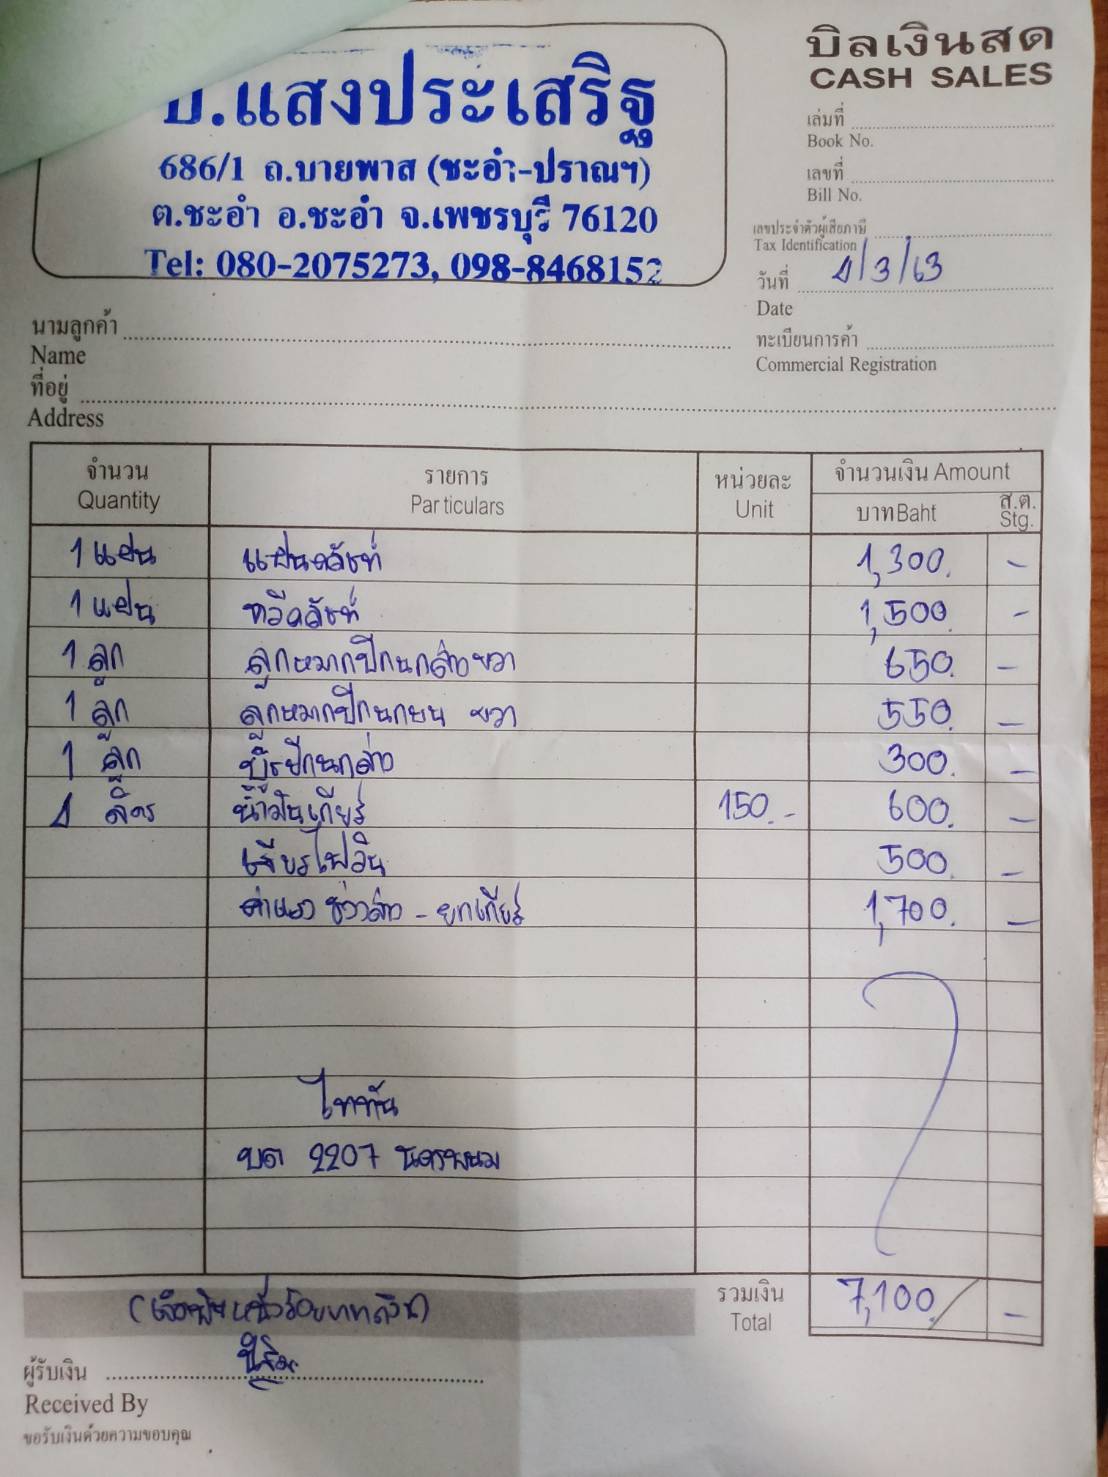 บิลเงินสด
CASH SALES
.แสงประเสริฐ
686/1 ถ.บายพาส (ชะอำ-ปราณฯ)
ต.ชะอำ อ.ชะอำ จ.เพชรบุรี 76120
Tel: 080-2075273, 098-8468152
เล่มที่
Book No.
เลขที่
Bill No.
เลขประจำตัวผู้เสียภาษี
Tax Identification
วันที่ 4/3/63
Date
ทะเบียนการค้า
Commercial Registration
นามลูกค้า
Name
ที่อยู่
Address
จำนวน รายการ หน่วยละ จำนวนเงิน Amount
Quantity Particulars Unit บาท Baht ส.ต. Stg.
1 แผ่น แผ่นคลัชท์ 1,300. -
1 แผ่น หวีคลัชท์ 1,500 -
1 ลูก ลูกหมากปีกนกล่างขวา 650. -
1 ลูก ลูกหมากปีกนกบน ขวา 550. -
1 ลูก บู๊ชปีกนกล่าง 300. -
4 ลิตร น้ำมันเกียร์ 150.- 600. -
เจียรไฟวีน 500. -
ค่าแรง ช่วงล่าง - ยกเกียร์ 1,700. -
ไททัน
บต 2207 นครพนม
(เจ็ดพันหนึ่งร้อยบาทถ้วน) รวมเงิน 7,100. -
Total
ผู้รับเงิน
Received By
ขอรับเงินด้วยความขอบคุณ